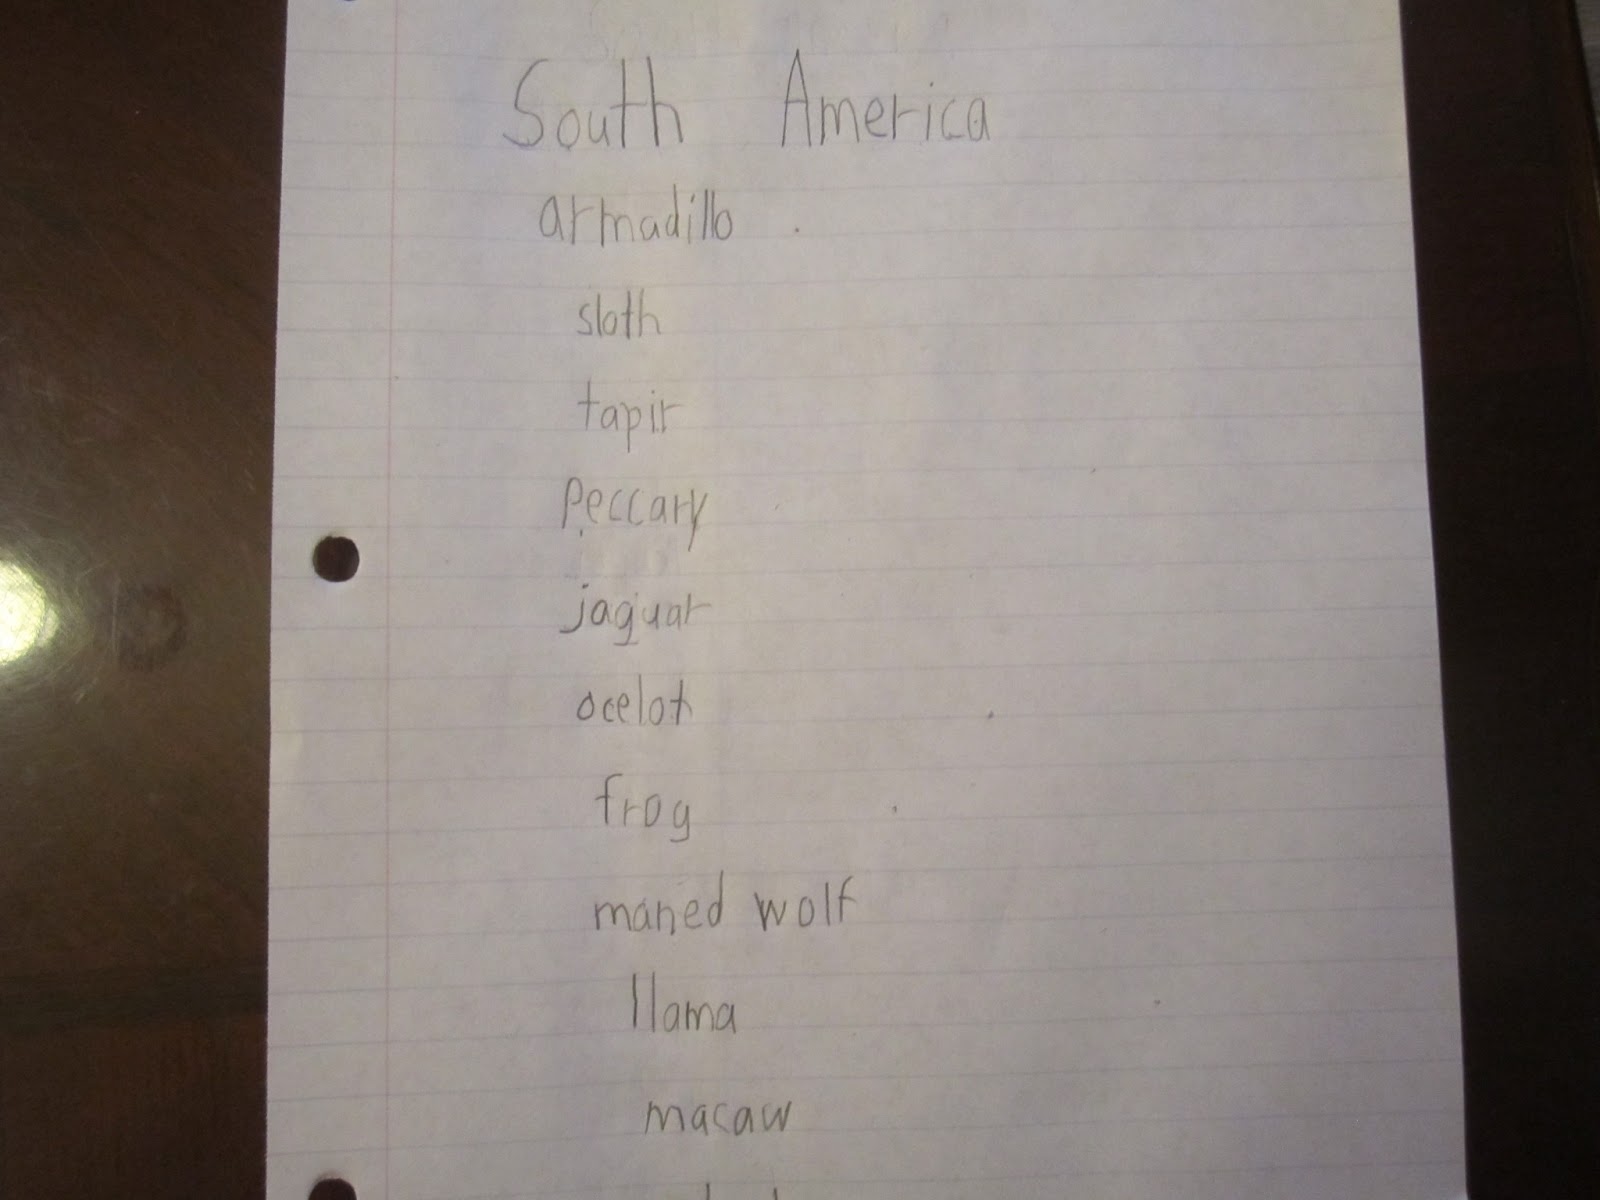 South America
armadillo
sloth
tapir
peccary
jaguar
ocelot
frog
maned wolf
llama
macaw